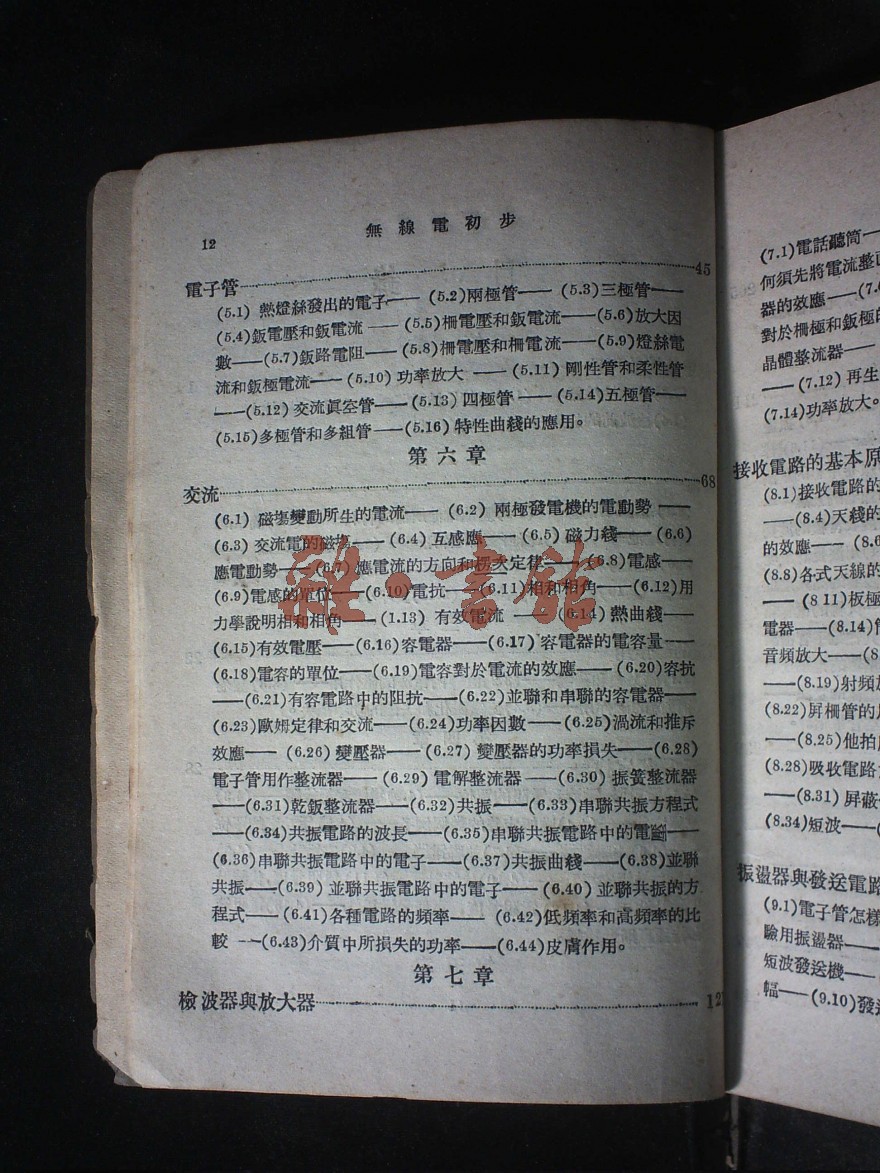 12
無線電初步
電子管 45
(5.1) 熱燈絲發出的電子—— (5.2)兩極管—— (5.3)三極管——
(5.4)鈑電壓和鈑電流 —— (5.5)柵電壓和鈑電流——(5.6)放大因
數——(5.7)鈑路電阻——(5.8)柵電壓和柵電流——(5.9)燈絲電
流和鈑極電流—— (5.10) 功率放大 —— (5.11) 剛性管和柔性管
——(5.12) 交流眞空管——(5.13) 四極管 —— (5.14)五極管——
(5.15)多極管和多組管——(5.16) 特性曲綫的應用。
第六章
交流 68
(6.1) 磁塲變動所生的電流—— (6.2) 兩極發電機的電動勢 ——
(6.3) 交流電的磁塲——(6.4) 互感應——(6.5) 磁力綫——(6.6)
應電動勢——(6.7) 應電流的方向和楞次定律——(6.8)電感——
(6.9)電感的單位——(6.10)電抗——(6.11)相和相角——(6.12)用
力學說明相和相角——(1.13) 有效電流 ——(6.14) 熱曲綫——
(6.15)有效電壓——(6.16)容電器——(6.17) 容電器的電容量——
(6.18)電容的單位——(6.19)電容對於電流的效應——(6.20)容抗
——(6.21)有容電路中的阻抗——(6.22)並聯和串聯的容電器——
(6.23)歐姆定律和交流——(6.24)功率因數——(6.25)渦流和推斥
效應—— (6.26) 變壓器——(6.27) 變壓器的功率損失——(6.28)
電子管用作整流器—— (6.29) 電解整流器 ——(6.30) 振簧整流器
——(6.31)乾鈑整流器——(6.32)共振——(6.33)串聯共振方程式
——(6.34)共振電路的波長——(6.35)串聯共振電路中的電——
(6.36)串聯共振電路中的電子——(6.37)共振曲綫——(6.38)並聯
共振——(6.39) 並聯共振電路中的電子——(6.40) 並聯共振的方
程式——(6.41)各種電路的頻率—— (6.42)低頻率和高頻率的比
較 ——(6.43)介質中所損失的功率——(6.44)皮膚作用。
第七章
檢波器與放大器 12
(7.1)電話聽筒—
何須先將電流整
器的效應——(7.
對於柵極和鈑極
晶體整流器——
—— (7.12) 再生
(7.14)功率放大。
接收電路的基本原
(8.1)接收電路的
——(8.4)天綫的
的效應—— (8.6
(8.8)各式天線的
—— (8 11)板極
電器——(8.14)
音頻放大——(8.
——(8.19)射頻
(8.22)屏柵管的
——(8.25)他拍
(8.28)吸收電路
——(8.31) 屏蔽
(8.34)短波——(
振盪器與發送電路
(9.1)電子管怎樣
驗用振盪器——
短波發送機——
幅——(9.10)發
雜·書館